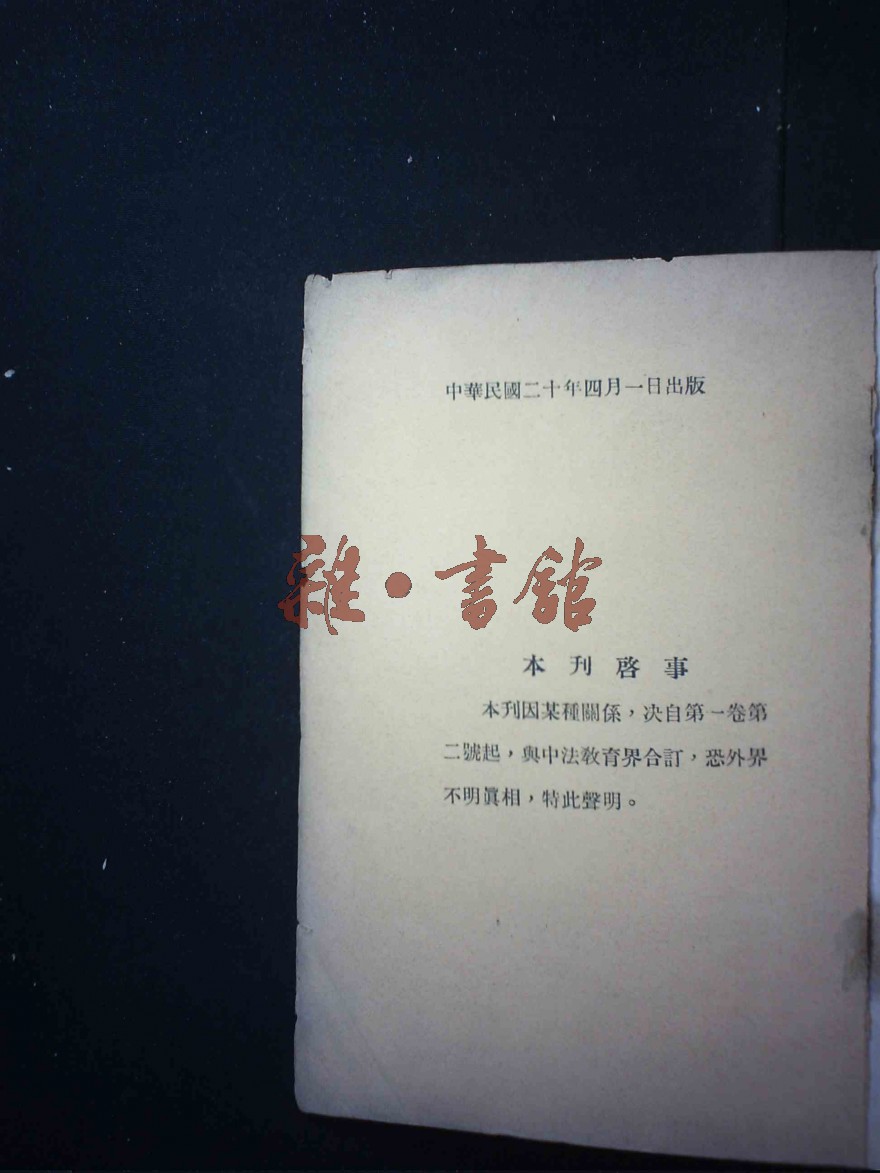 中華民國二十年四月一日出版
雜·書館
本刊啓事
本刊因某種關係，决自第一卷第
二號起，與中法教育界合訂，恐外界
不明眞相，特此聲明。